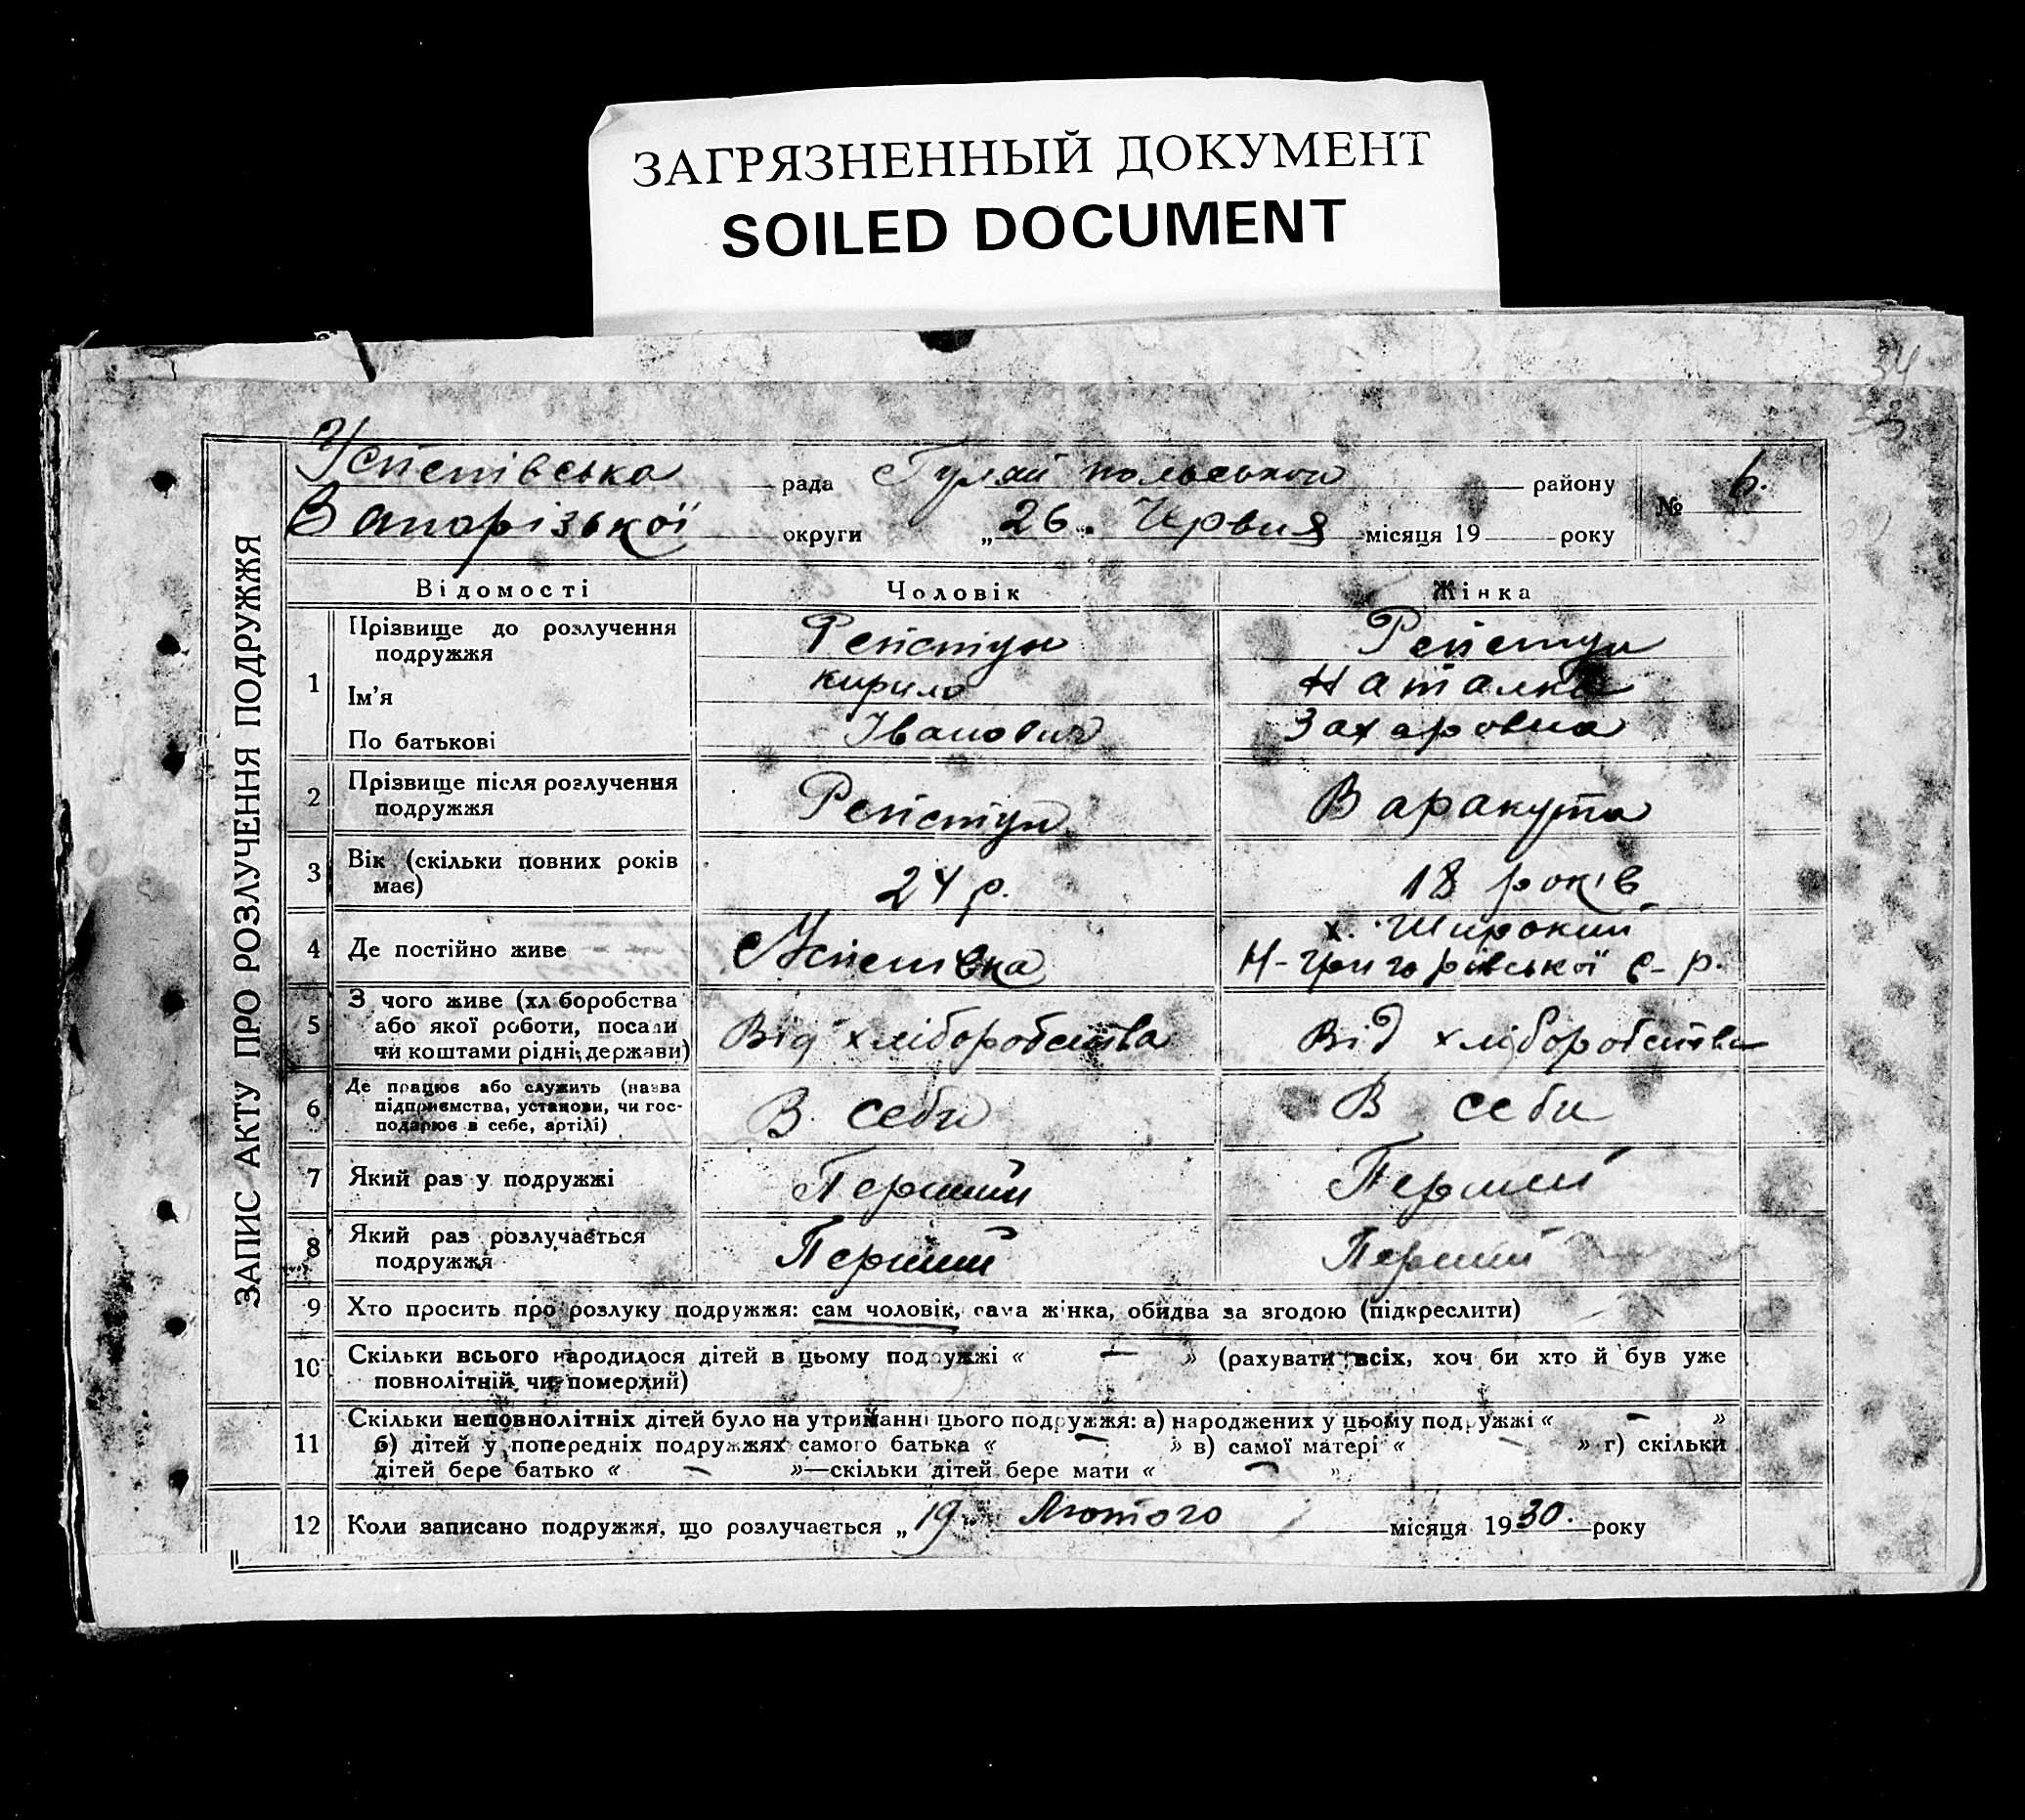 ЗАГРЯЗНЕННЫЙ ДОКУМЕНТ
SOILED DOCUMENT
34
33
ЗАПИС АКТУ ПРО РОЗЛУЧЕННЯ ПОДРУЖЖЯ
Успенівська рада Гуляй польської району № 6.
Запорізької округи „26" Червня місяця 19 року
Відомості Чоловік Жінка
1 Прізвище до розлучення подружжя Репстун Репстун
Ім'я Кирило Наталка
По батькові Іванович Захаровна
2 Прізвище після розлучення подружжя Репстун Варакута
3 Вік (скільки повних років має) 24 р. 18 років
4 Де постійно живе Успенівка х. Широкий
Н-Григорівської с-р.
5 З чого живе (хліборобства
або якої роботи, посади
чи коштами рідні, держави) Від хліборобства Від хліборобства
6 Де працює або служить (назва
підприємства, установи, чи гос-
подарює в себе, артілі) В себи В себи
7 Який раз у подружжі Перший Перший
8 Який раз розлучається
подружжя Перший Перший
9 Хто просить про розлуку подружжя: сам чоловік, сама жінка, обидва за згодою (підкреслити)
10 Скільки всього народилося дітей в цьому подружжі « — » (рахувати всіх, хоч би хто й був уже
повнолітній чи померлий)
11 Скільки неповнолітніх дітей було на утриманні цього подружжя: а) народжених у цьому подружжі « — »
б) дітей у попередніх подружжях самого батька « — » в) самої матері « — » г) скільки
дітей бере батько « — »—скільки дітей бере мати « — »
12 Коли записано подружжя, що розлучається „19" Лютого місяця 1930. року